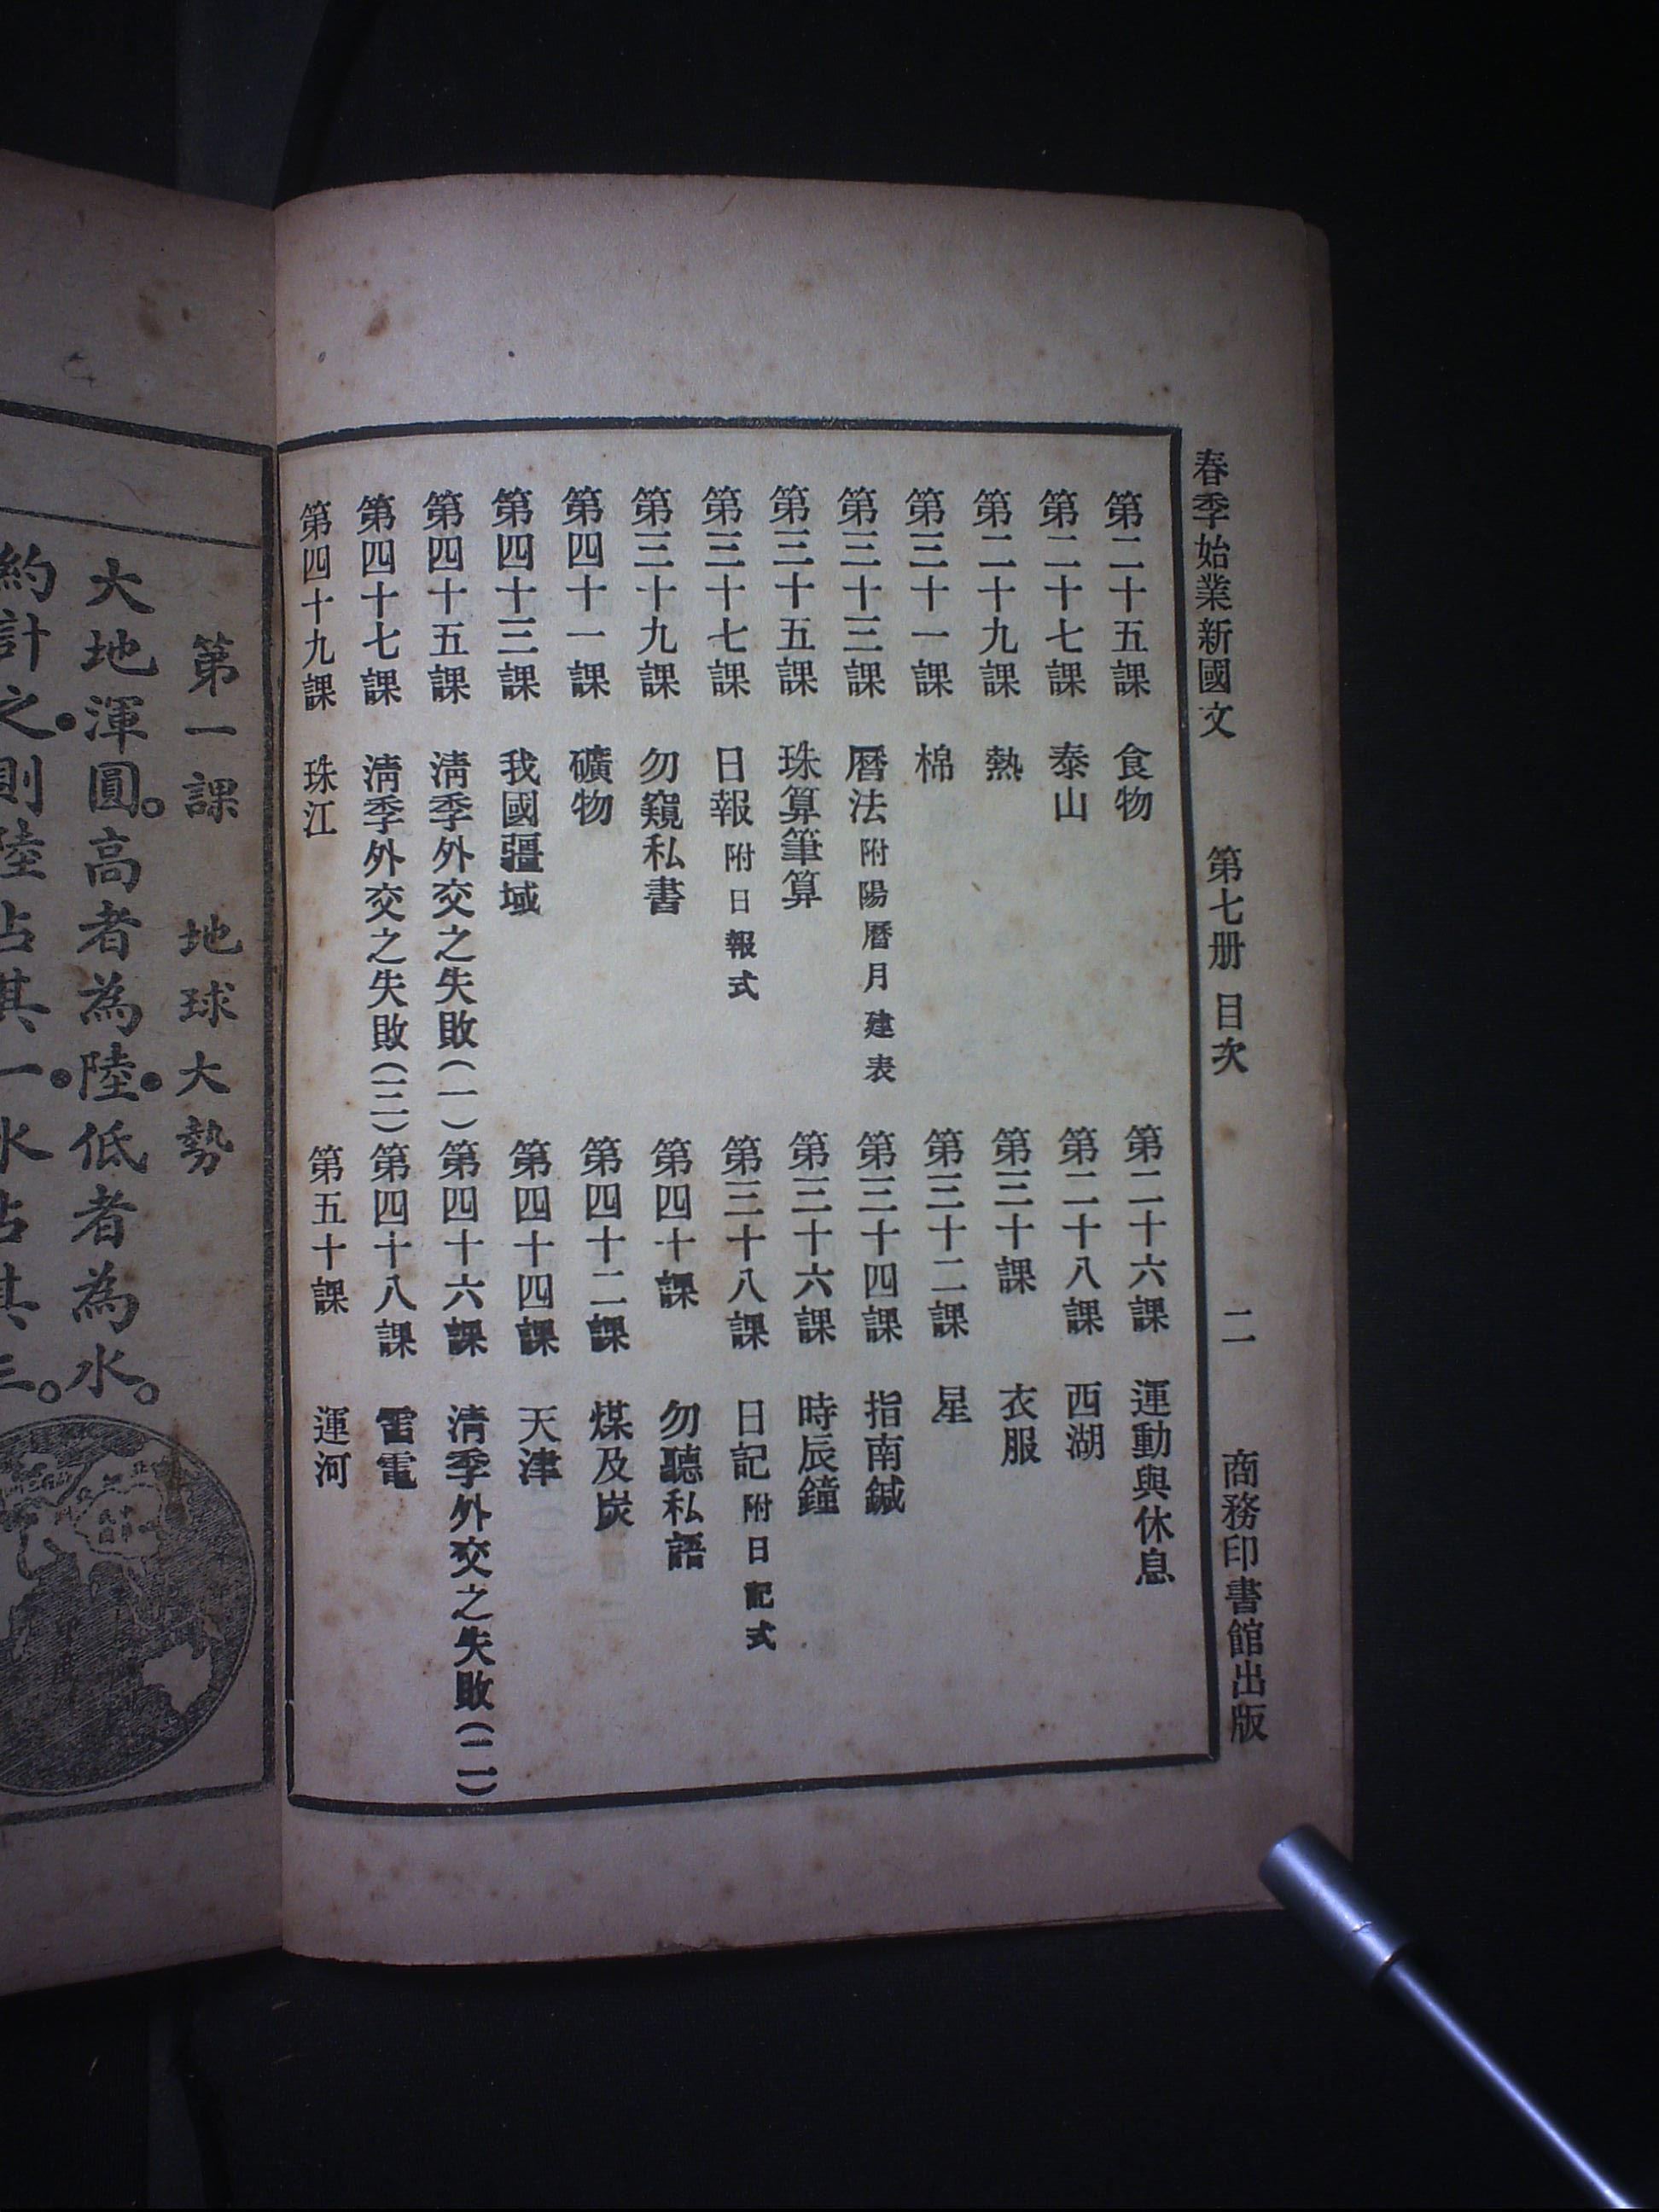 春季始業新國文 第七册 目次 二 商務印書館出版
第二十五課 食物
第二十六課 運動與休息
第二十七課 泰山
第二十八課 西湖
第二十九課 熱
第三十課 衣服
第三十一課 棉
第三十二課 星
第三十三課 曆法附陽曆月建表
第三十四課 指南鍼
第三十五課 珠算筆算
第三十六課 時辰鐘
第三十七課 日報附日報式
第三十八課 日記附日記式
第三十九課 勿窺私書
第四十課 勿聽私語
第四十一課 礦物
第四十二課 煤及炭
第四十三課 我國疆域
第四十四課 天津
第四十五課 清季外交之失敗(一)
第四十六課 清季外交之失敗(二)
第四十七課 清季外交之失敗(三)
第四十八課 雷電
第四十九課 珠江
第五十課 運河
第一課 地球大勢
大地渾圓。高者為陸。低者為水。
約計之。則陸占其一。水占其三。